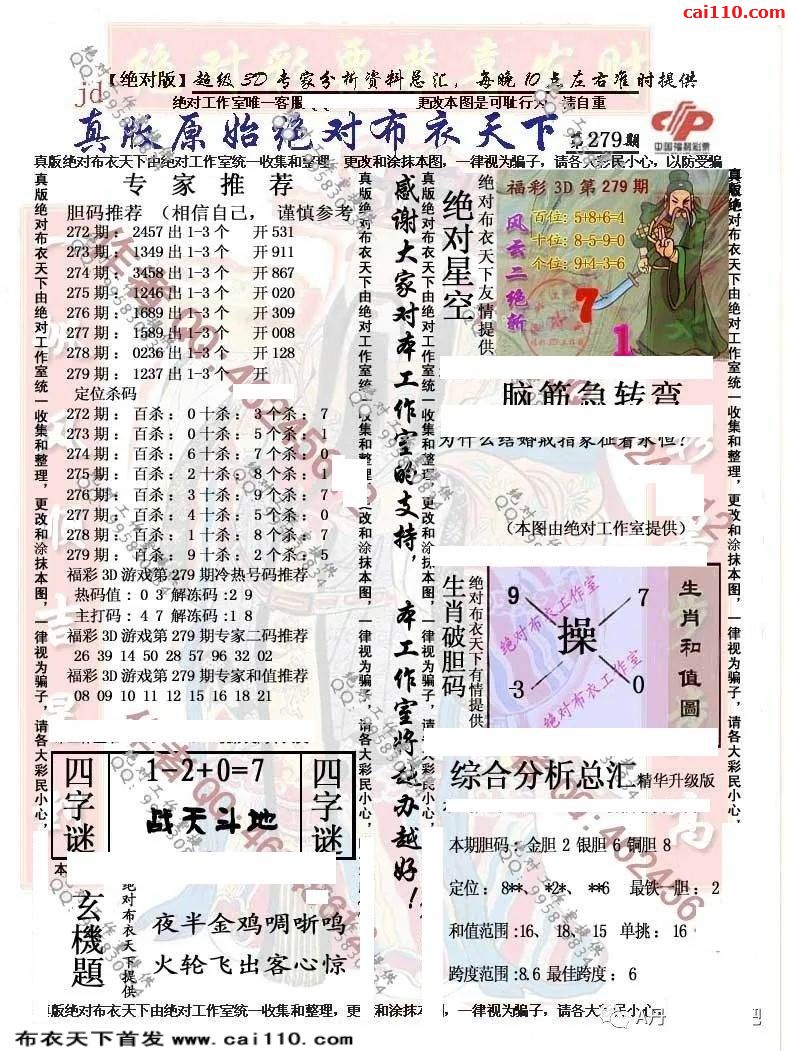 cai110.com
【绝对版】超级3D专家分析资料总汇，每晚10点左右准时提供
jd
绝对工作室唯一客服
更改本图是可耻行为，请自重
真版原始绝对布衣天下
第279期
中国福利彩票
真版绝对布衣天下由绝对工作室统一收集和整理，更改和涂抹本图，一律视为骗子，请各大彩民小心，以防受骗
真版绝对布衣天下由绝对工作室统一收集和整理，更改和涂抹本图，一律视为骗子，请各大彩民小心，
专家推荐
胆码推荐（相信自己，谨慎参考
272期：2457出1-3个 开531
273期：1349出1-3个 开911
274期：3458出1-3个 开867
275期：1246出1-3个 开020
276期：1689出1-3个 开309
277期：1589出1-3个 开008
278期：0236出1-3个 开128
279期：1237出1-3个 开
定位杀码
272期：百杀：0十杀：3个杀：7
273期：百杀：0十杀：5个杀：1
274期：百杀：6十杀：7个杀：0
275期：百杀：2十杀：8个杀：1
276期：百杀：3十杀：9个杀：7
277期：百杀：4十杀：5个杀：0
278期：百杀：1十杀：8个杀：7
279期：百杀：9十杀：2个杀：5
福彩3D游戏第279期冷热号码推荐
热码值：03解冻码:29
主打码：47解冻码:18
福彩3D游戏第279期专家二码推荐
26 39 14 50 28 57 96 32 02
福彩3D游戏第279期专家和值推荐
08 09 10 11 12 15 16 18 21
感谢大家对本工作室的支持，本工作室将越办越好！
绝对星空
绝对布衣天下友情提供
福彩3D第279期
风云二绝斩
百位：5+8+6=4
十位：8-5-9=0
个位：9+4-3=6
7
1
脑筋急转弯
为什么结婚戒指象征着永恒？
（本图由绝对工作室提供）
生肖破胆码
绝对布衣天下有情提供
9
7
操
3
0
绝对布衣工作室
绝对布衣工作室
生肖和值圖
四字谜
1-2+0=7
战天斗地
四字谜
玄機題
绝对布衣天下提供
夜半金鸡啁哳鸣
火轮飞出客心惊
综合分析总汇 精华升级版
本期胆码：金胆 2 银胆 6 铜胆 8
定位：8**、*2*、**6 最铁一胆：2
和值范围:16、18、15 单挑：16
跨度范围:8.6 最佳跨度：6
真版绝对布衣天下由绝对工作室统一收集和整理，更改和涂抹本图，一律视为骗子，请各大彩民小心
布衣天下首发 www.cai110.com